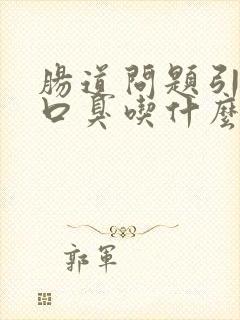 腸道問題引
口臭喫什麼
郭軍